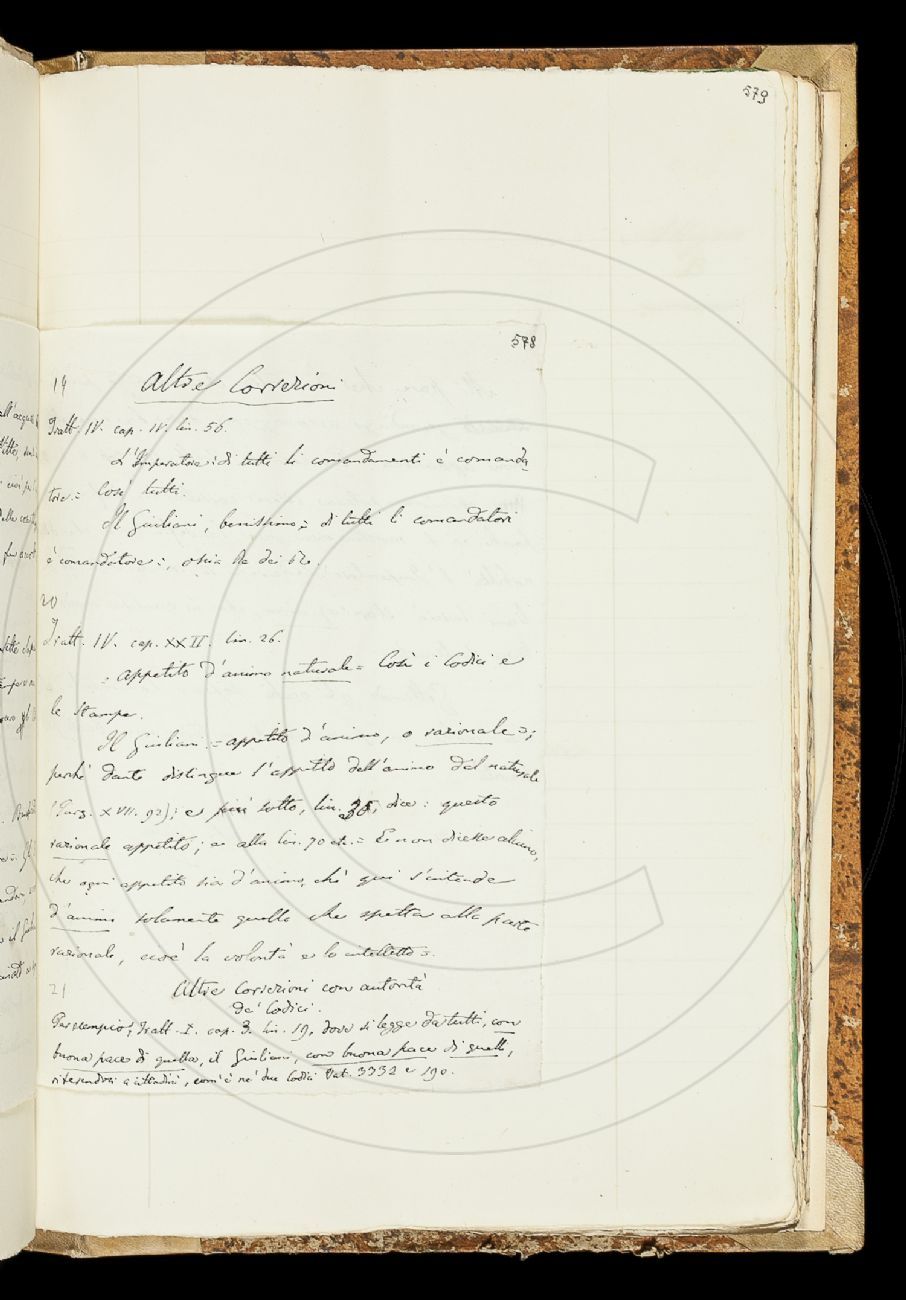 579
578
19 Altre Correzioni
Tratt. IV. cap. IV. lin. 56.
L'Imperatore: di tutti li comandamenti è comanda
tore = Così tutti.
Il Giuliani, benissimo = di tutti li comandatori
è comandatore =, ossia Re dei Re.
20
Tratt. IV. cap. XXII. lin. 26.
= appetito d'animo naturale = Così i Codici e
le stampe.
Il Giuliani = appetito d'animo, o razionale =;
perchè Dante distingue l'appetito dell'animo dal naturale
(Purg. XVII. 92); e più sotto, lin. 35, dice: questo
razionale appetito; e alla lin. 70 etc. = E non dicesse alcuno,
che ogni appetito sia d'animo, chè qui s'intende
d'animo solamente quello che spetta alla parte
razionale, cioè la volontà e lo intelletto =.
21 Altre Correzioni con autorità
de' Codici.
Per esempio, Tratt. I. cap. 3. lin. 19, dove si legge da tutti, con
buona pace di quella, il Giuliani, con buona pace di quelli,
riferendosi a cittadini, com'è ne' due Codici Vat. 3332 e 190.